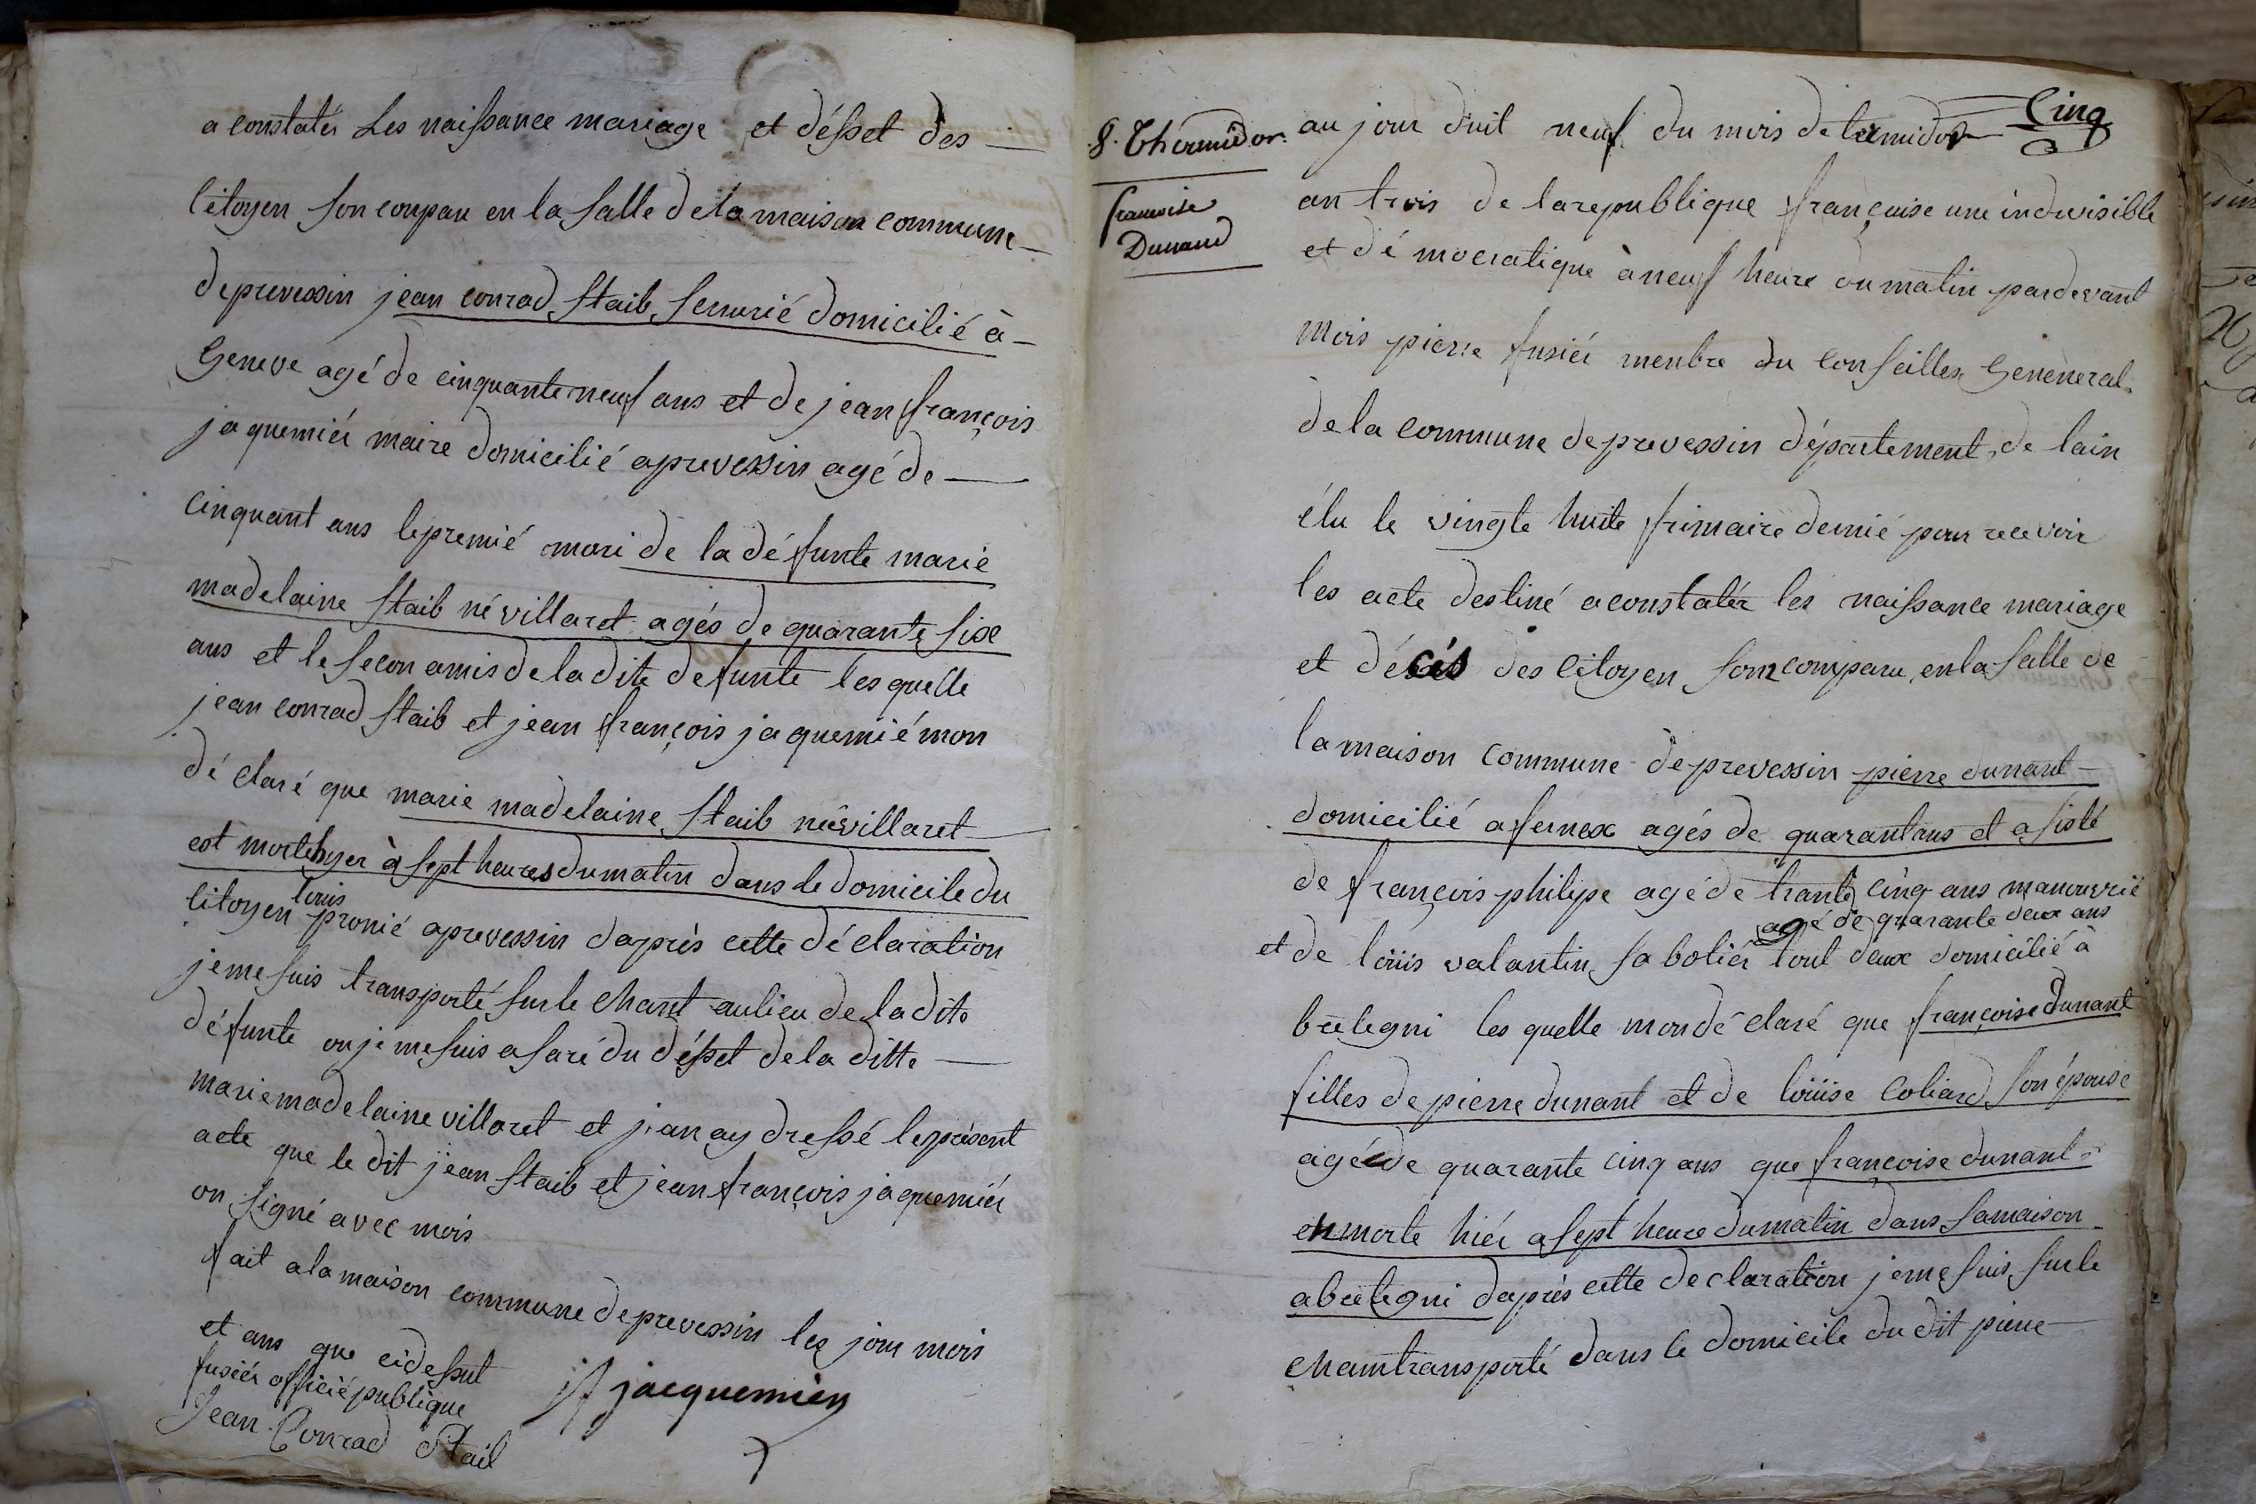 a constatér Les naissance mariage et désset des
Citoyen son conparu en la salle de la maison commune
de prevessin jean conrad staib serrurié domicilié à
Geneve agé de cinquante neuf ans et de jean françois
jaquemiér maire domicilié a prevessin agé de
cinquant ans le premié mari de la défunte marie
madelaine Staib né villaret agés de quarante sixe
ans et le secon amis de la dite defunte les quelle
jean conrad staib et jean françois jaquemié mon
dé claré que marie madelaine Staib né villaret
est morte hyer à sept heures du matin dans le domicile du
Citoyen louis pronié a prevessin daprès cette déclaration
je me suis transporté sur le chant au lieu de la dite
défunte ou je me suis asaré du désset de la ditte
marie madelaine villaret et j'an ay dressé le présent
acte que le dit jean Staib et jean françois jaquemiér
on signé avec mois
fait a la maison commune de prevessin les jour mois
et ans que ci dessut
fusiér officié publique
jf jacquemier
Jean Conrad Staib
Cinq
9. Thermidor.
francoise
Dunand
au jour duit neuf du mois de termidor
an trois de la republique françaisse une indivisible
et dé mocratique à neuf heure du matin pardevant
mois pierre fusiér menbre du Conseilles Geneneral
de la commune de prevessin département de lain
élu le vingte huite frimaire dernié pour recevoir
les acte destiné a constatér les naissance mariage
et décés des Citoyen son comparu en la salle de
la maison commune de prevessin pierre dunant
domicilié a fernex agés de quarant ans et asisté
de françois philipe agé de trante cinq ans manouvrié
agé de quarante deux ans
et de loüis valantin sabotiér tout deux domicilié à
bretegni les quelle mon dé claré que françoise Dunant
filles de pierre dunant et de loüise Coliard son épouse
agée de quarante cinq ans que francoise dunant
en morte hiér a sept heure du matin dans sa maison
a bretegni daprès cette declaration je me suis sur le
cham transporté dans le domicile du dit pierre